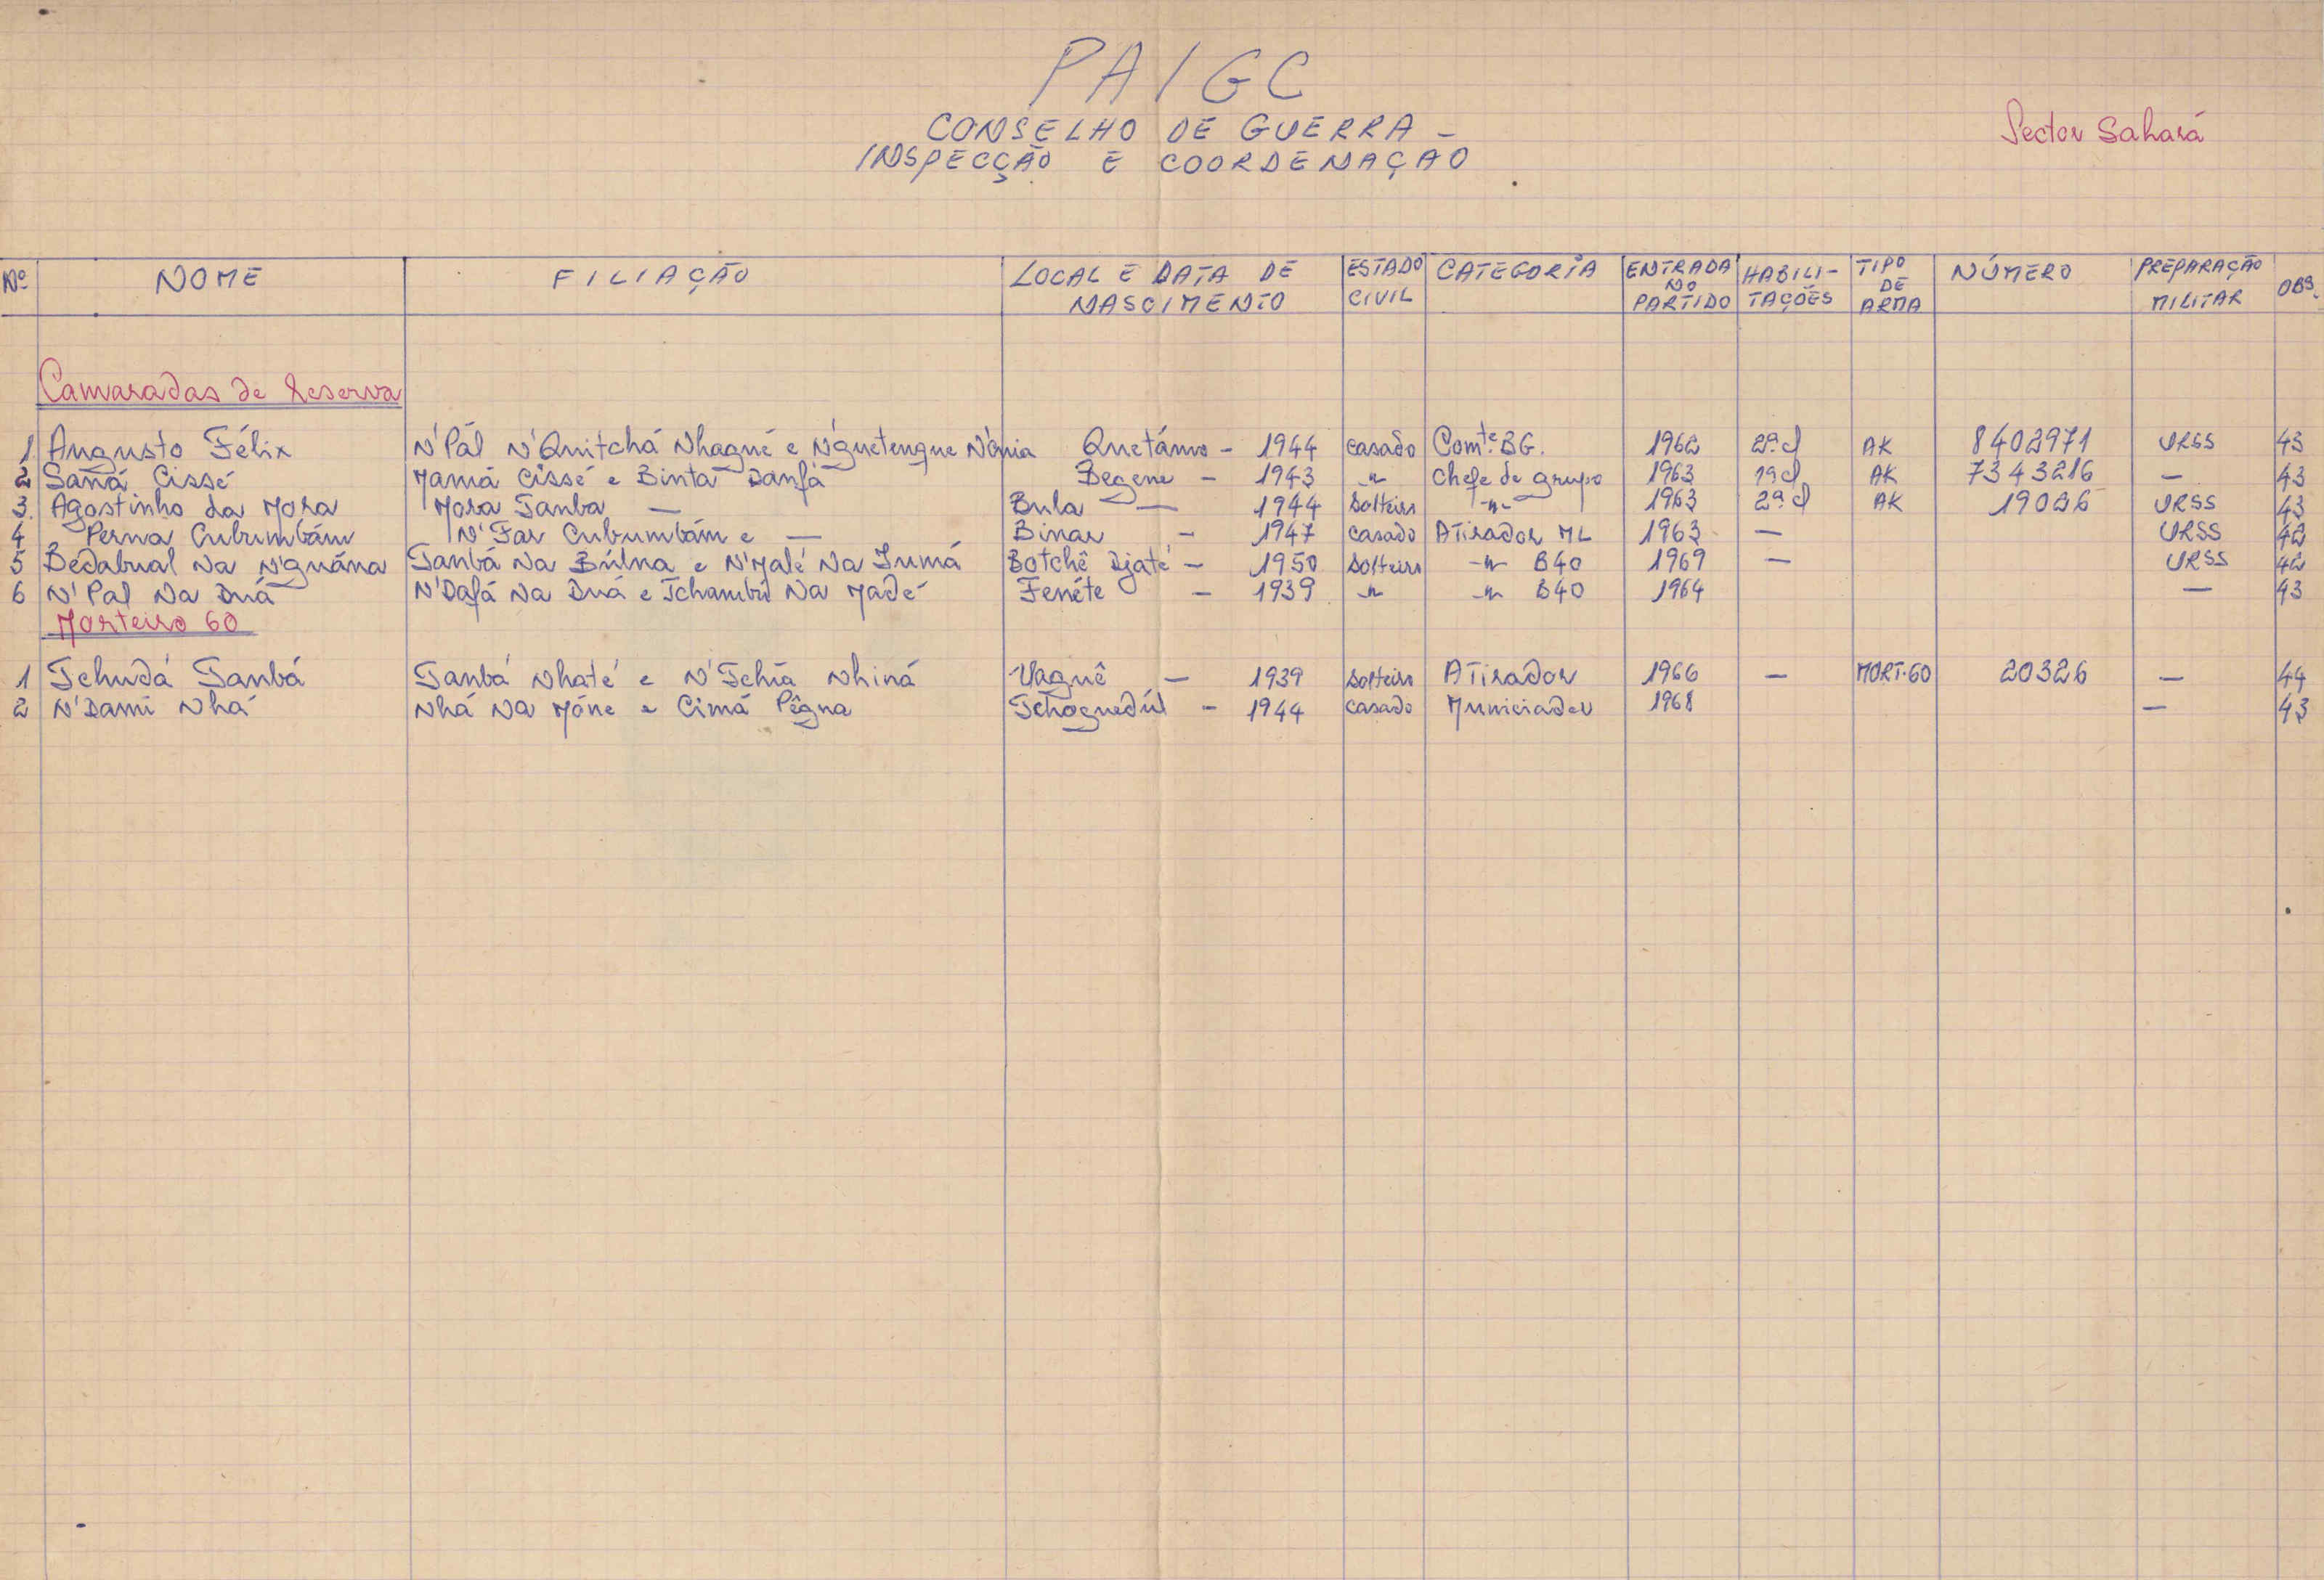 PAIGC
CONSELHO DE GUERRA -
INSPECÇÃO E COORDENAÇAO
Sector Sahará
Nº NOME FILIAÇÃO LOCAL E DATA DE NASCIMENTO ESTADO CIVIL CATEGORIA ENTRADA NO PARTIDO HABILI-TAÇÕES TIPO DE ARMA NÚMERO PREPARAÇÃO MILITAR OBS.
Camaradas de Reserva
1 Augusto Félix N'Pál N'Quitchá Nhagué e N'guetengue N'ónia Quetámo - 1944 casado Comte. BG. 1962 2ª cl AK 8402971 URSS 43
2 Saná Cissé Mamá Cissé e Binta Danfá Begene - 1943 -"- Chefe de grupo 1963 1ª cl AK 7343216 - 43
3. Agostinho da Mora Mora Tamba — Bula — 1944 Solteiro -"- 1963 2ª cl AK 19026 URSS 43
4 Perna Cubumbám N'Far Cubumbám e — Binar - 1947 casado ATirador ML 1963 — URSS 42
5 Bedabual Na N'guána Tanbá Na Búlna e N'Malé Na Iumá Botchê Djaté - 1950 Solteiro -"- B40 1969 — URSS 42
6 N'Pal Na Duá N'Dafá Na Duá e Tchambú Na Madé Fenéte - 1939 -"- -"- B40 1964 — 43
Morteiro 60
1 Tchudá Tanbá Tanbá Nhaté e N'Tchia Nhiná Vaguê — 1939 Solteiro ATirador 1966 — MORT.60 20326 — 44
2 N'Dami Nhá Nhá Na Móne e Cimá Pêgna Tchoguedúl - 1944 casado Municiador 1968 — 43